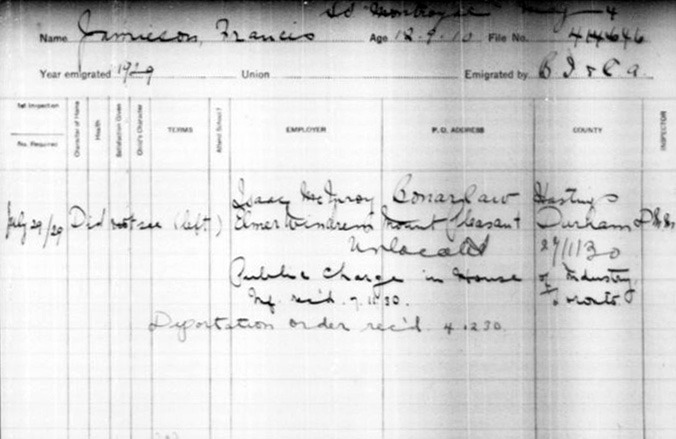 SS "Montroyal" May 4
Name Jamieson, Francis Age 18.9.10 File No.
Year emigrated 1929 Union Emigrated by B I & C A.
1st Inspection
No. Required
Character of Home
Health
Satisfaction Given
Child's Character
TERMS
Attend School?
EMPLOYER
P. O. ADDRESS
COUNTY
INSPECTOR
Isaac McIlroy Bonarlaw Hastings
July 29/29 Did not see (left) Elmer Windrem Mount Pleasant Durham
Unlocated 27/11/30
Public Charge in House of Industry,
Toronto
Inf. rec'd. 7.11.30.
Deportation order rec'd. 4.12.30.